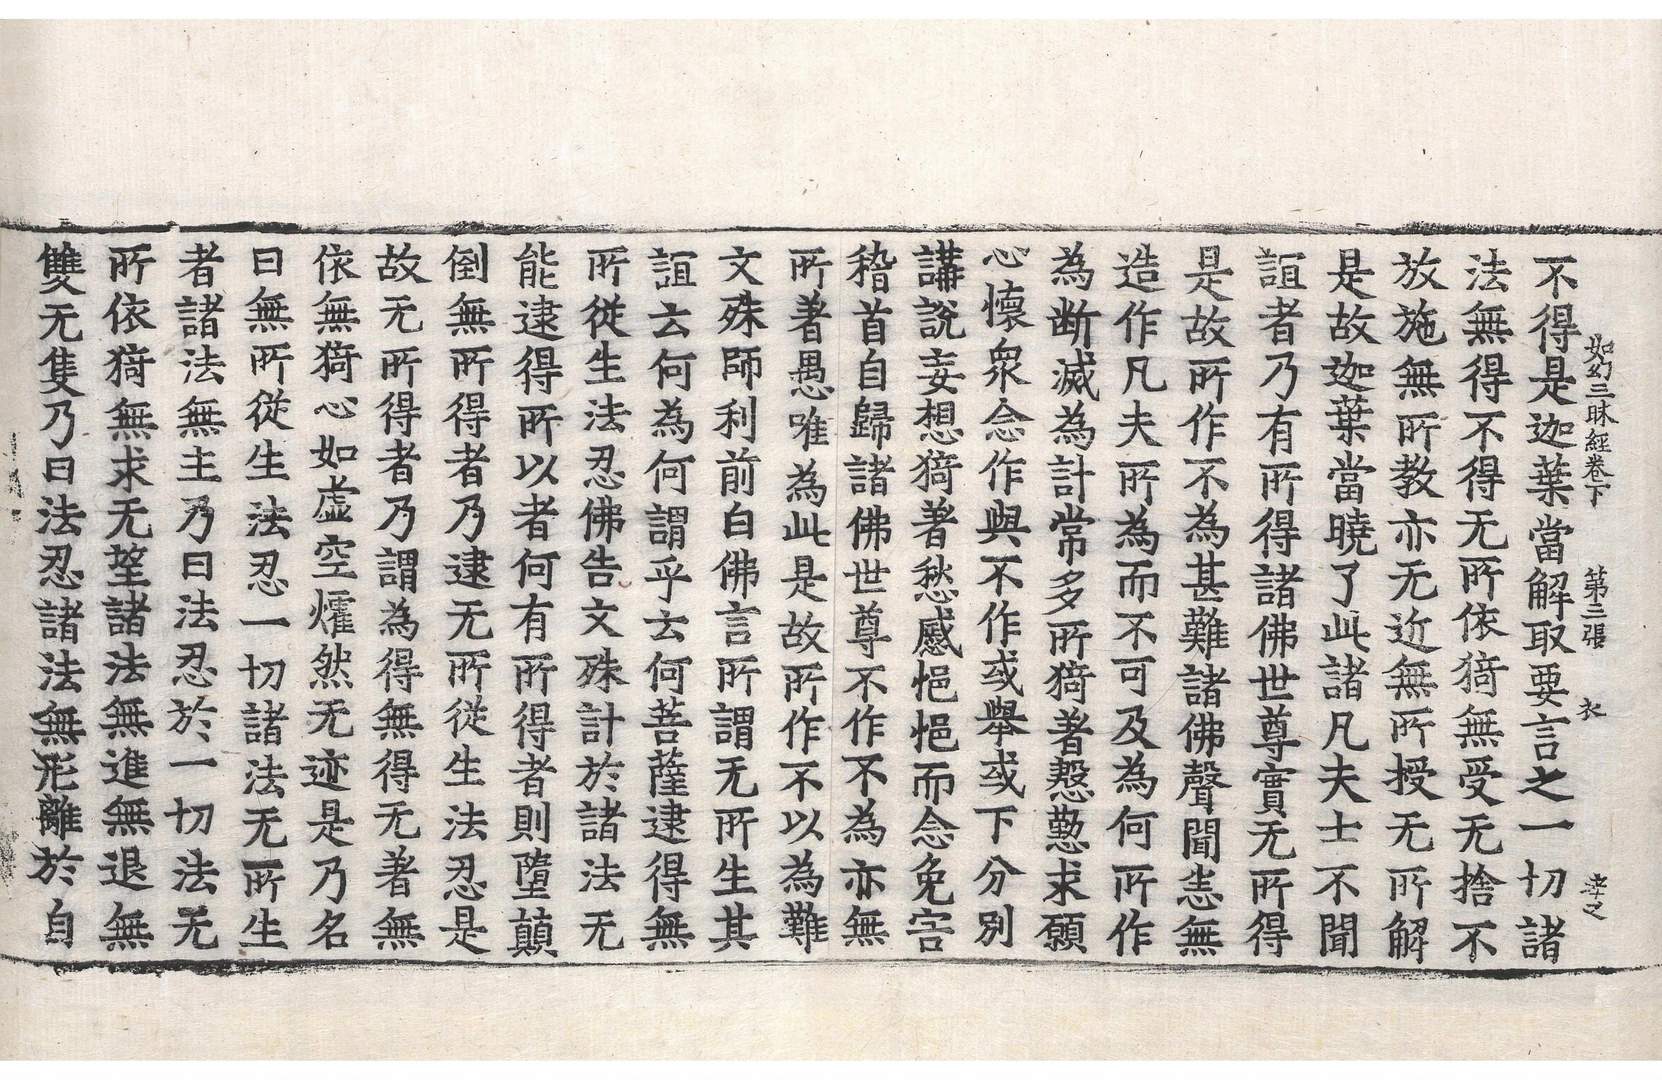 如幻三昧經卷下　第三張　衣
不得是迦葉當解取要言之一切諸
法無得不得无所依猗無受无捨不
放施無所教亦无近無所授无所解
是故迦葉當曉了此諸凡夫士不聞
誼者乃有所得諸佛世尊實无所得
是故所作不為甚難諸佛聲聞恚無
造作凡夫所為而不可及為何所作
為断滅為計常多所猗著慇懃求願
心懷衆念作與不作或舉或下分別
講說妄想猗著愁慼悒悒而念免害
稽首自歸諸佛世尊不作不為亦無
所著愚唯為此是故所作不以為難
文殊師利前白佛言所謂无所生其
誼云何為何謂乎云何菩薩逮得無
所従生法忍佛告文殊計於諸法无
能逮得所以者何有所得者則墮顛
倒無所得者乃逮无所従生法忍是
故无所得者乃謂為得無得无著無
依無猗心如虚空燿然无迹是乃名
曰無所従生法忍一切諸法无所生
者諸法無主乃曰法忍於一切法无
所依猗無求无望諸法無進無退無
雙无隻乃曰法忍諸法無形離於自